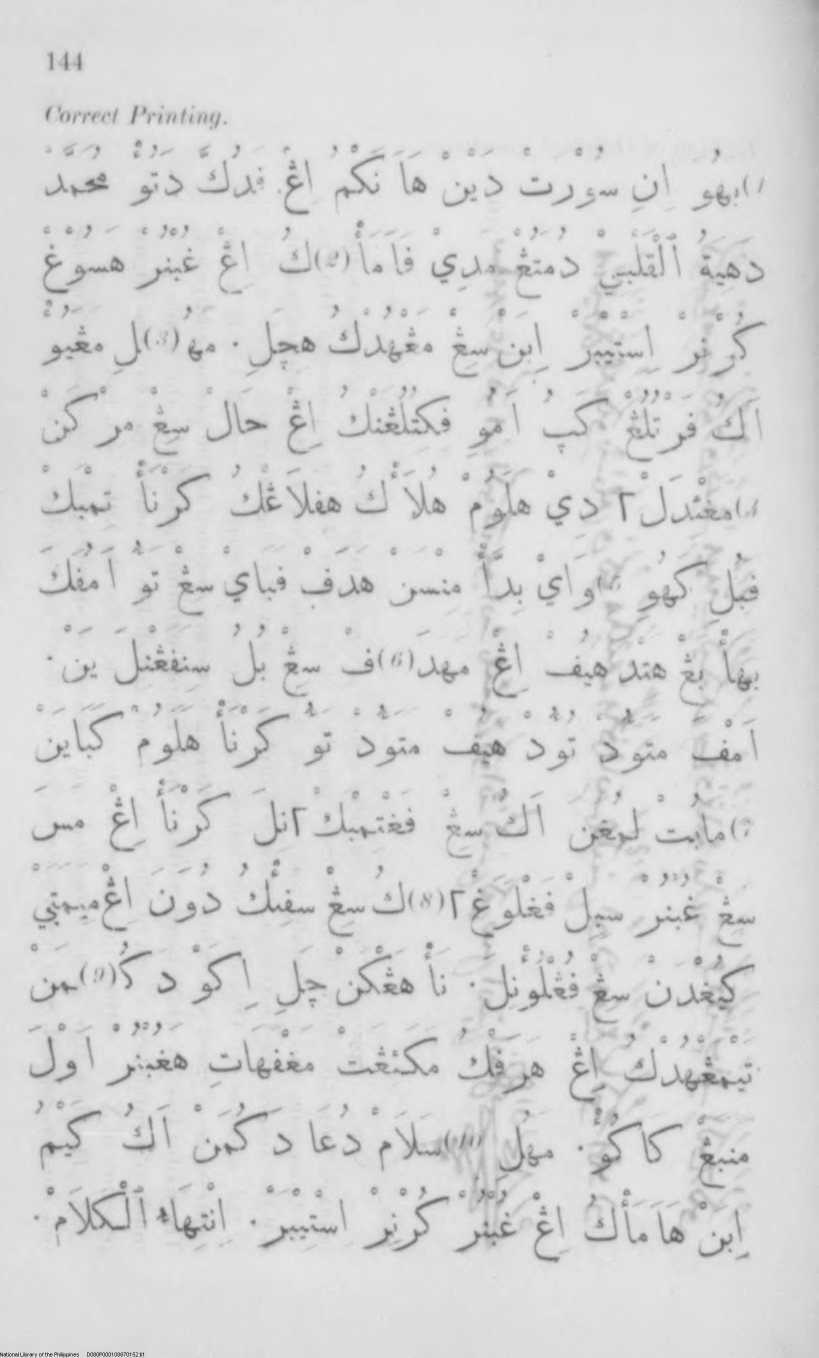 144
Correct Printing.
(1 بهُو اِنِ سُوْرَتْ دَيْنْ هَا نَكُمْ اِڠْ فَدُكَّ دَتُوْ مُحَمَّدْ
دَهِيَةُ ٱلْقَلْبِيْ دُمَتُڠْ مَدِيْ فَامَأْ(2)كُ اِڠْ غُبُنُرْ هَسُوْغْ
كُرْنِرْ اِسْتِيْبَرْ اِبَنْ سِڠْ مَڠْهُدْكُ هِچَلِ. مهُ(3)لِ مڠيُوْ
اَكُ فَرْتُلُڠْ كَپُ اَمُوِ فكتُلُڠَنْكُ اِڠْ حَالْ سِڠْ مَرْكَنْ
(4)مڠْنْدَلْ٢ دِيْ هلَوُمْ هُلَأْكُ هفلَاڠْكُ كَرْنَأْ تمْبَكْ
فبُلِ كهُو (5)وَايْ بِدَّأْ مِنْسَنْ هدَفْ فبَايْ سِڠْ تَوُ اَمُفَكْ
بهَأْ بڠْ هنْد هيُفْ اِڠْ مهدَ(6)فْ سِڠْ بُلُ سنفڠْنْلَ يَنْ.
اَمْفَ متَوُدْ تَوُدْ هيُفْ متَوُدْ تَوُ كَرْنَأْ هلَوُمْ كَبَايَنْ
(7)مابُتْ لمُغن اَكُ سِڠْ فغْتِمْبَكْ٢نلَ كَرْنَأْ اِڠْ مسَ
سِڠْ غُبُنُرْ سبلْ فَغْلَوُغْ٢(8)كُ سِڠْ سفِئْكُ دُوَنَ اِڠْ ميمتَبيْ
كيُغْدَنْ سِڠْ فُڠْلُؤُنِلَ. نَأْ هڠْكَنْ چَلِ اِكَوْ دكَُ(9)مَنْ
تيمڠْهُدْكُ اِڠْ هَرَفْكُ مكتڠَتْ مڠْفهَاتِ هغُبُنُرْ اَوْلَ
منبڠْ كاكُوْ. مهُلِ (10)سَلَامْ دُعَا دَكُمَنْ اَكُ كيْمُ
اِبَنْ هَامَأْكُ اِڠْ غُبُنُرْ كُرْنِرْ اسْتِيْبَرْ. اِنْتِهَاء ٱلْكَلَامْ.
National Library of the Philippines